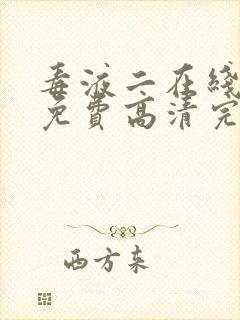 毒液二在线
免费高清完
西方来